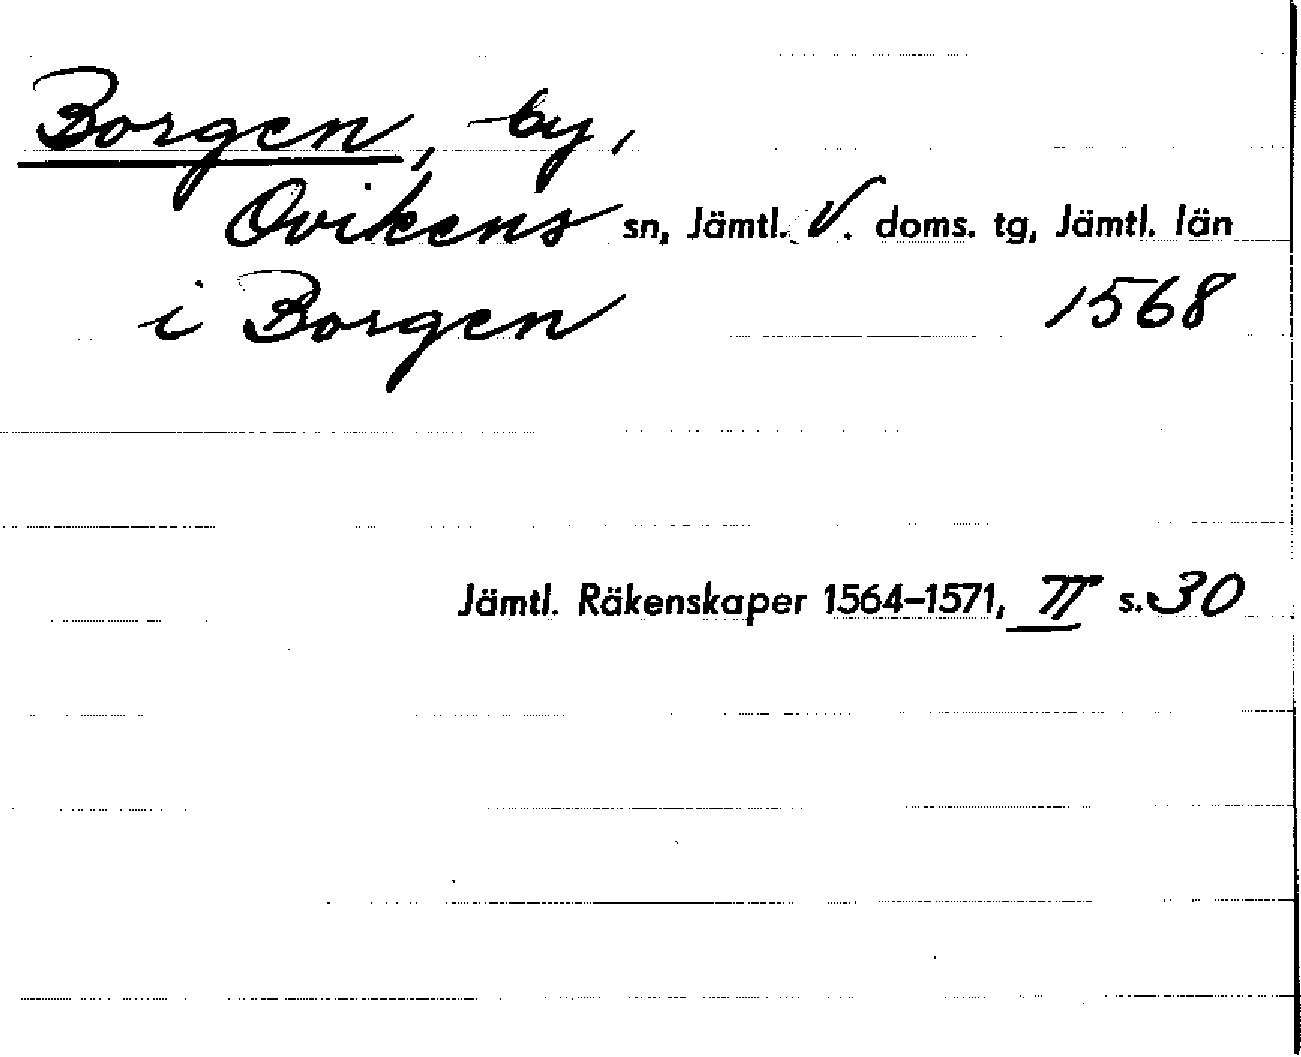 Borgen, by,
Ovikens sn, Jämtl. V. doms. tg, Jämtl. län
i Borgen 1568
Jämtl. Räkenskaper 1564-1571, II s. 30